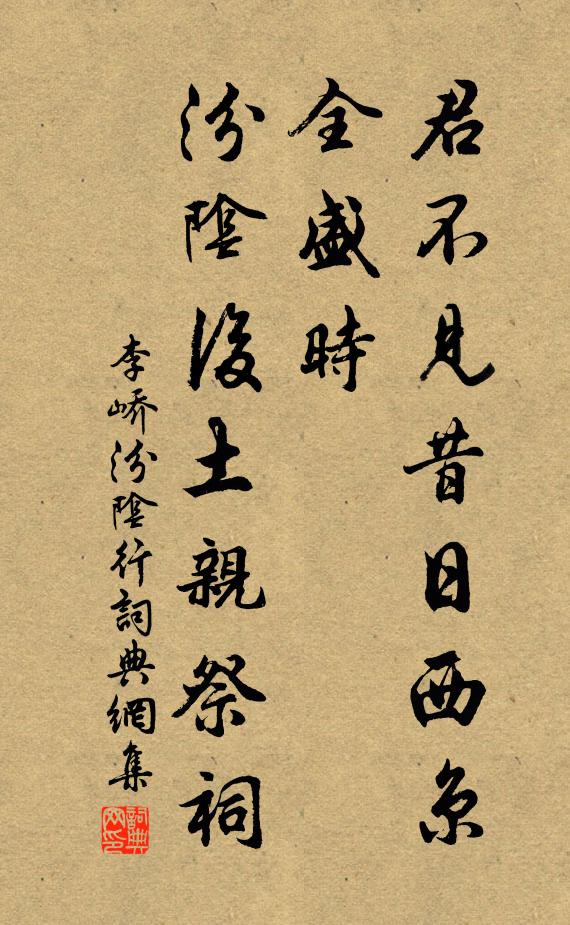 君不見昔日西京
全盛時
汾陰後土親祭祠
李嶠汾陰行詞典網集
詞典网印